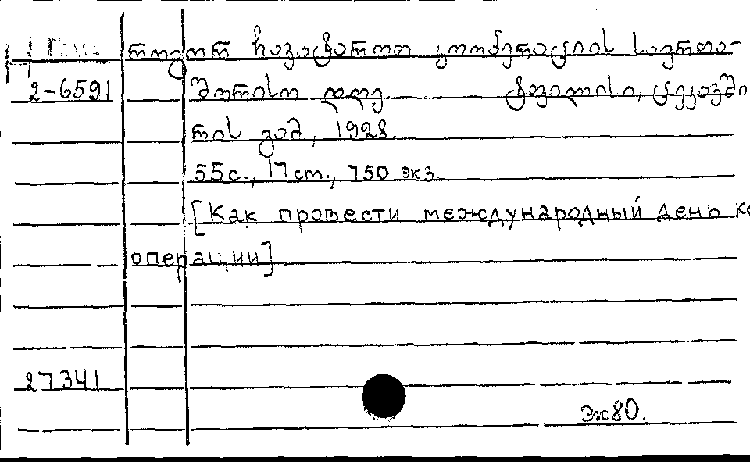 როგორ ჩავატაროთ კოოპერაციის საერთა-
2-6591 შორისო დღე. ტფილისი, ცეკავში
რის გამ, 1928.
55с., 17 cm., 750 экз.
[Как провести международный день ко
операции]
27341
Эк80.